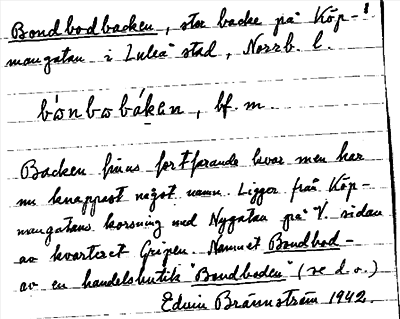 Bondbodbacken, stor backe på Köp-
mangatan i Luleå stad, Norrb. l.
bònbobákɐn, bf. m.
Backen finns fortfarande kvar men har
nu knappast något namn. Ligger från Köp-
mangatans korsning med Nygatan på V. sidan
av kvarteret Gripen. Namnet Bondbod-
av en handelsbutik "Bondboden" (se d. o.)
Edvin Brännström 1942.